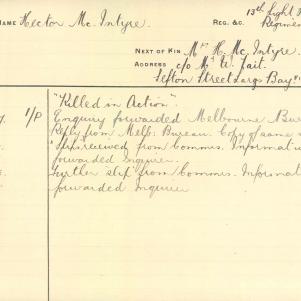 NAME Hector Mc. Intyre. REG. &C. 13th Light
Regimen
NEXT OF KIN Mr H. Mc. Intyre.
ADDRESS c/o Mr W. Tait.
Sefton Street Largs Bay.
"Killed in Action".
1/P Enquiry forwarded Melbourne Bur
Reply from Melb. Bureau. Copy of same
"Slip" received from Comms. Informati
forwarded Inquirer.
Further slip from Comms. Informat
forwarded Inquirer